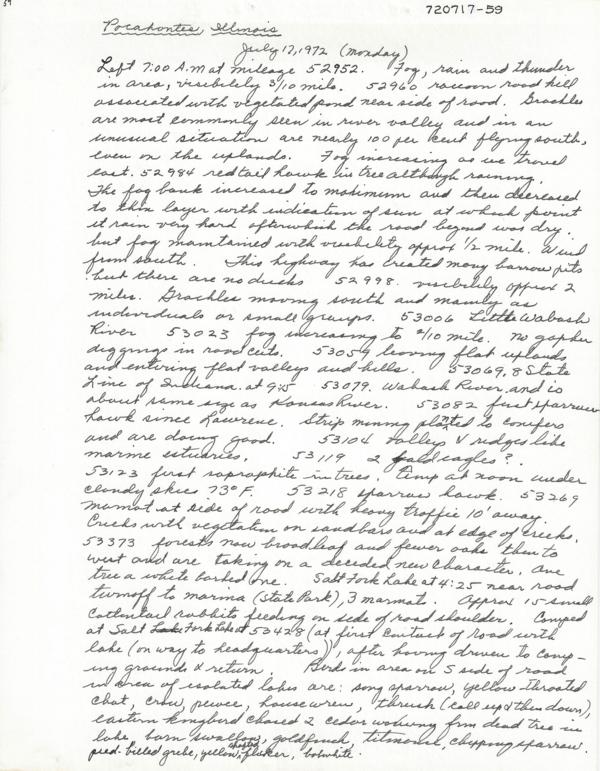 59
720717-59
Pocahontas, Illinois
July 17, 1972 (Monday)
Left 7:00 A.M at mileage 52952. Fog, rain and thunder
in area, visibility 3/10 mile. 52960 racoon road kill
associated with vegetated pond near side of road. Grackles
are most commonly seen in river valley and in an
unusual situation are nearly 100 per cent flying south,
even on the uplands. Fog increasing as we travel
east. 52984 redtail hawk in tree although raining.
The fog bank increased to maximum and then decreased
to thin layer with indication of sun at which point
it rain very hard afterwhich the road beyond was dry.
but fog maintained with visibility approx 1/2 mile. Wind
from south. This highway has created many barrow pits
but there are no ducks 52998. visibility approx 2
miles. Grackles moving south and mainly as
individuals or small groups. 53006 Little Wabash
River 53023 fog increasing to 2/10 mile. no gopher
diggings in road cuts. 53059 leaving flat uplands
and entering flat valleys and hills. 53069.8 State
Line of Indiana at 9:15 53079. Wabash River, and is
about same size as Kansas River. 53082 first sparrow
hawk since Lawrence. Strip mining planted to conifers
and are doing good. 53104 valleys & ridges like
marine estuaries. 53119 2 bald eagles?.
53123 first saprophite in trees. temp at noon under
cloudy skies 73° F. 53218 sparrow hawk. 53269
marmot at side of road with heavy traffic 10' away.
Creeks with vegetation on sandbars and at edge of creeks.
53373 forests now broadleaf and fewer oaks then to
west and are taking on a decided new character. One
tree a white barked one. Salt Fork Lake at 4:25 near road
turnoff to marina (State Park), 3 marmots. Approx 15 small
cottontail rabbits feeding on side of road shoulder. Camped
at Salt Fork Lake at 53428 (at first contact of road with
lake (on way to headquarters)), after having driven to camp-
ing grounds & return. Birds in area on S side of road
in area of isolated lakes are: song sparrow, yellow throated
chat, crow, pewee, house wren, thrush (call up & then down),
eastern kingbird chased 2 cedar waxwing from dead tree in
lake, barn swallow, goldfinch, titmouse, chipping sparrow.
pied-billed grebe, yellow shafted flicker, bobwhite.